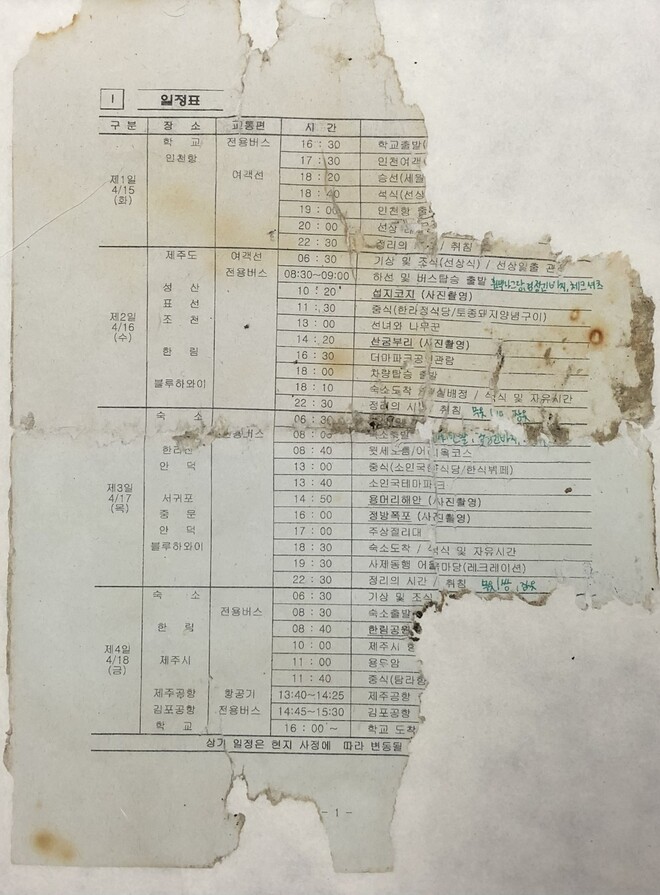 I 일정표
구 분 장 소 교통편 시 간
제1일 4/15 (화)
학 교 전용버스 16 : 30 학교출발(
인천항 17 : 30 인천여객
여객선 18 : 20 승선(세월
18 : 40 석식(선상
19 : 00 인천항 출
20 : 00 선상
22 : 30 정리의 / 취침
제2일 4/16 (수)
제주도 여객선 06 : 30 기상 및 조식(선상식) / 선상일출 관
전용버스 08:30~09:00 하선 및 버스탑승 출발
성 산 10 : 20 섭지코지 (사진촬영)
표 선 11 : 30 중식(한라정식당/토종돼지양념구이)
조 천 13 : 00 선녀와 나무꾼
14 : 20 산굼부리 (사진촬영)
한 림 16 : 30 더마파크공연관람
18 : 00 차량탑승 출발
블루하와이 18 : 10 숙소도착 / 실배정 / 석식 및 자유시간
22 : 30 정리의 시간 / 취침
제3일 4/17 (목)
숙 소 06 : 30
전용버스 08 : 00 숙소출발
한라산 08 : 40 윗세오름/어리목코스
안 덕 13 : 00 중식(소인국 식당/한식뷔페)
13 : 40 소인국테마파크
서귀포 14 : 50 용머리해안 (사진촬영)
중 문 16 : 00 정방폭포 (사진촬영)
안 덕 17 : 00 주상절리대
블루하와이 18 : 30 숙소도착 / 석식 및 자유시간
19 : 30 사제동행 어울마당(레크레이션)
22 : 30 정리의 시간 / 취침
제4일 4/18 (금)
숙 소 06 : 30 기상 및 조식
전용버스 08 : 30 숙소출발
한 림 08 : 40 한림공원
10 : 00 제주시
제주시 11 : 00 용두암
11 : 40 중식(탐라
제주공항 항공기 13:40~14:25 제주공항
김포공항 전용버스 14:45~15:30 김포공항
학 교 16 : 00~ 학교 도착
상기 일정은 현지 사정에 따라 변동될
- 1 -